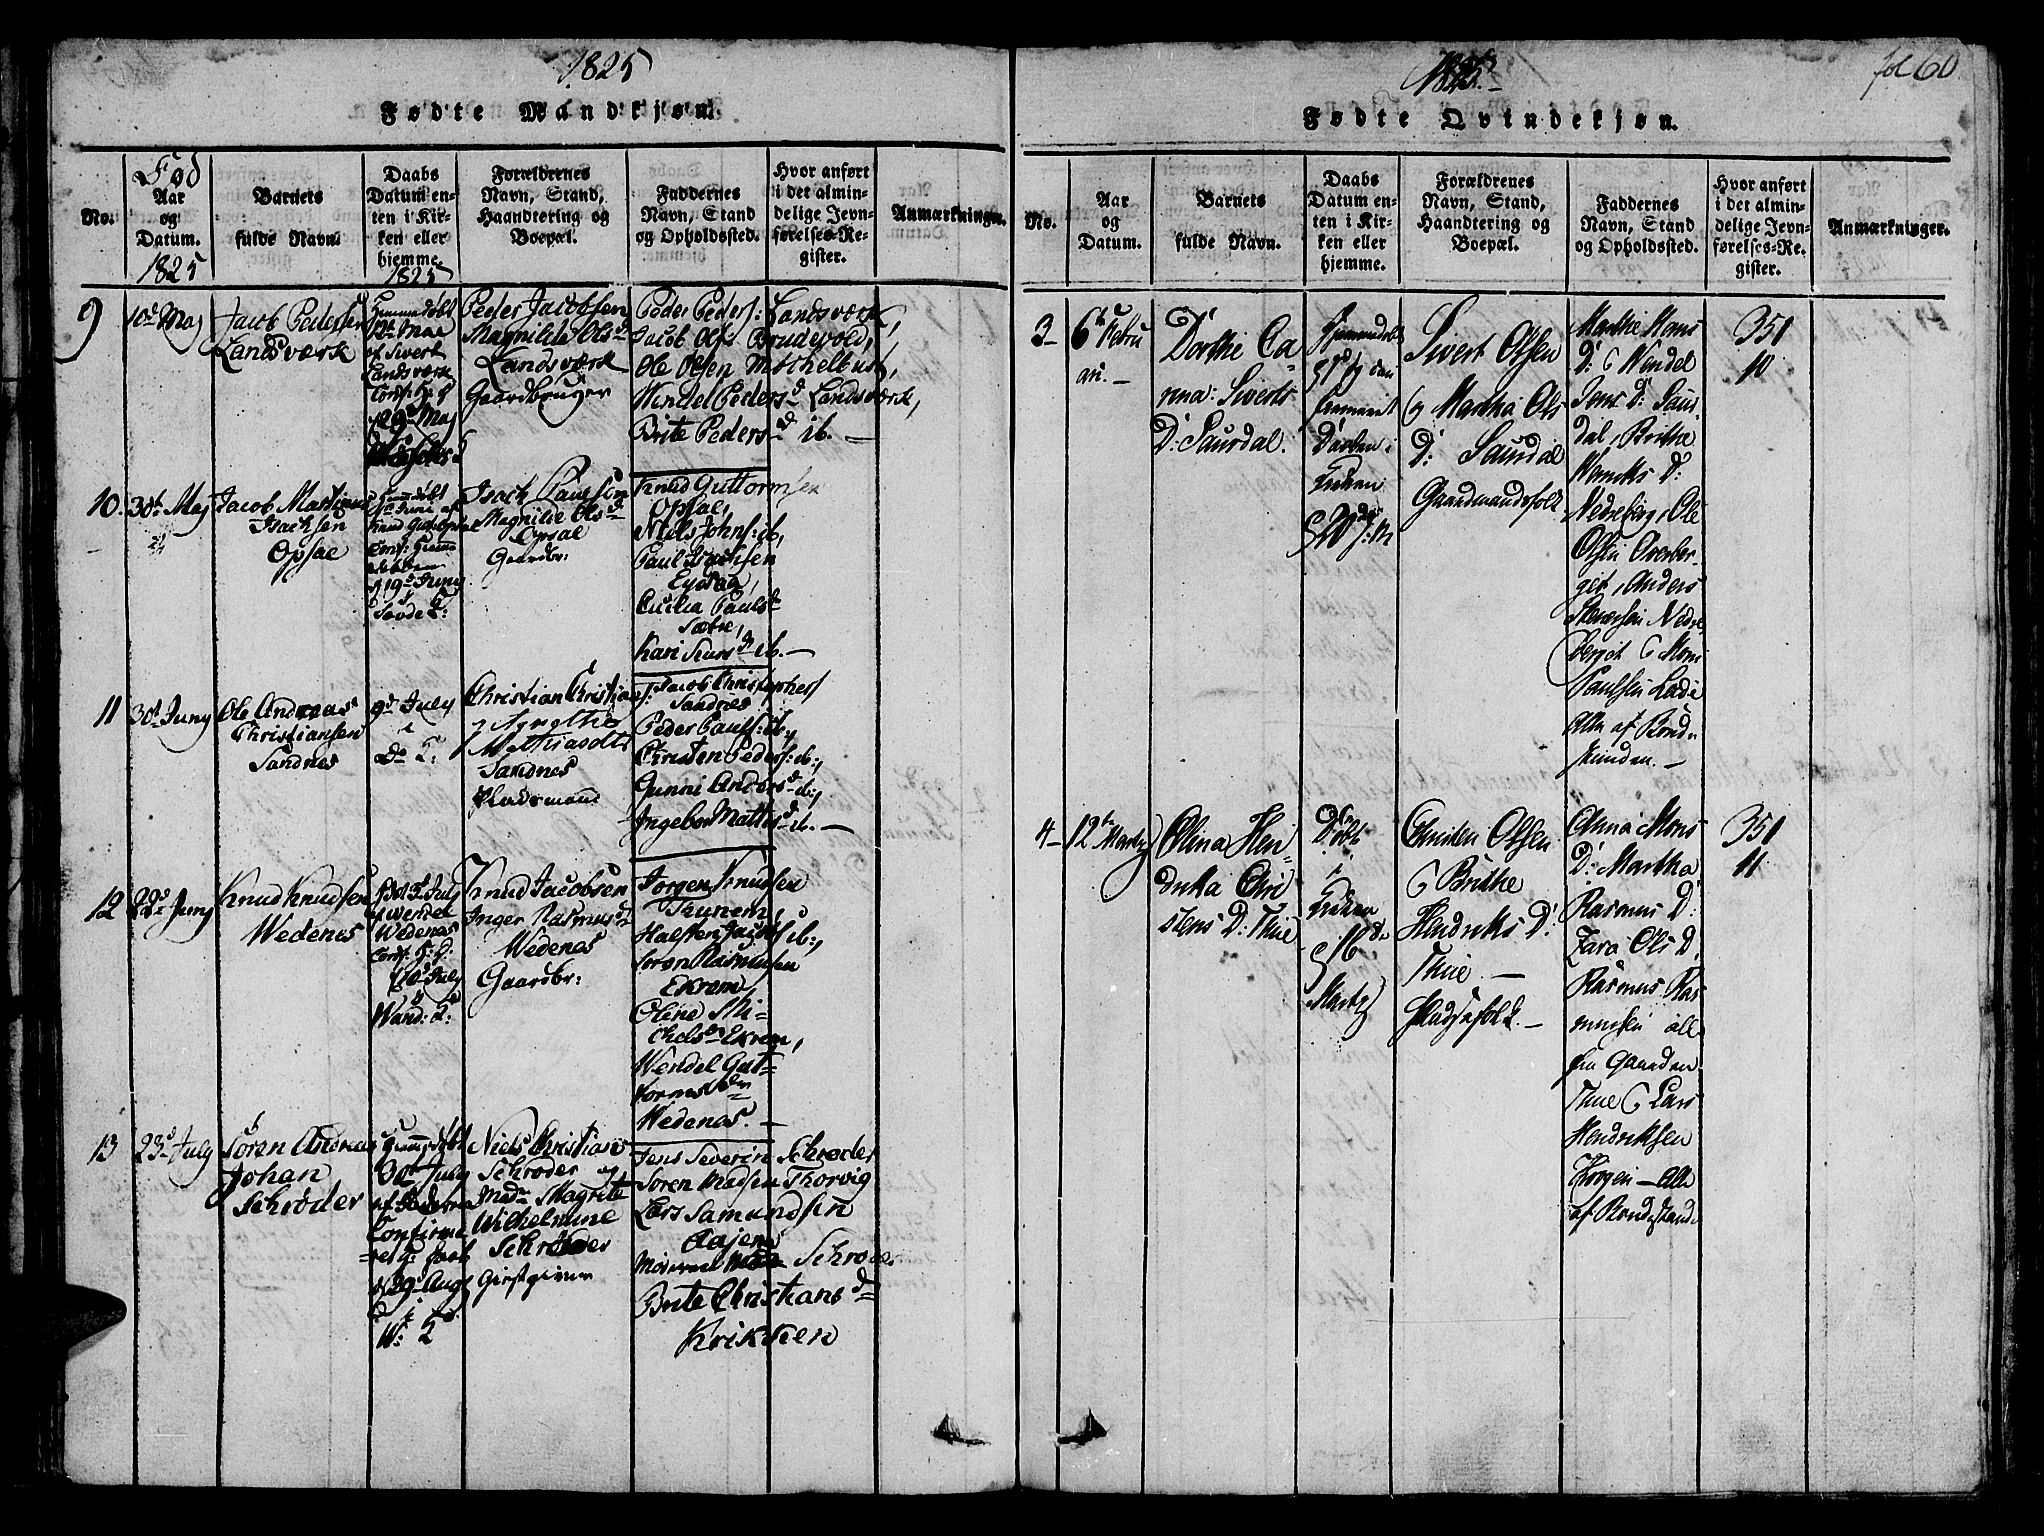 1825
Fødte Mandkjøn.
No.
Fød
Aar
og
Datum.
1825
Barnets
fulde Navn.
Daabs
Datum en-
ten i Kir-
ken eller
hjemme.
1825
Forældrenes
Navn, Stand,
Haandtering og
Boepæl.
Faddernes
Navn, Stand
og Opholdssted.
Hvor anført
i det almin-
delige Jevn-
førelses-Re-
gister.
Anmærkninger.
9
10d Maj
Jacob Pedersen
Landsværk
Hjemmedøbt
af Sivert
Landsværk
Conf: H: g
29d Maj
Peder Jacobsen
Magnilde Olsd
Landsværk
Gaardbruger
Peder Peders: Landsværk,
Jacob Ols Brudevold,
Ole Olsen Mochelbust,
Wendel Pedersd Landsværk,
Brite Pedersd ib. —
10.
30d Maj
Jacob Martinus
Isachsen
Opsal
Hjemdøbt
Juni af
19d Juny
Isach Paulsen
Magnilde Olsd
Opsal
Gaardbr:
Knud Guttormsen
Opsal,
Niels Johns: ib,
Paul Isachsen
Cicilia Paulsd
Sætre,
Kari Siursd ib. —
11
30d Juny
Ole Andreas
Christiansen
Sandnes
9d July
i
Do K:
Christian Christian
Mathiasdtr
Sandnes
Pladsmand
Jacob Christophers
Sandnes
Peder Pauls: ib.,
Christen Peders: ib.,
Gunni Andersd ib.,
Ingebor Mattisd ib. —
12
22d Juny
Knud Knudsen
Wedenes
July
af Wendel
Wedenes
Conf: H: D.
10d July
Knud Jacobsen
Inger Rasmusd
Wedenes
Gaardbr:
Jørgen Knudsen
Halsten Jacobs: ib.,
Søren Rasmusen
Ekrem,
Oline Mi-
chelsdr Ekrem,
Wendel Gut-
tormsdr
Wedenes. —
13
23d July
Søren Andreas
Johan
Schrøder
Hjemmedøbt
30d July
af Faderen
Confirme-
ret g: Daab
29d Aug
i
Niels Christians
Schrøder og
Mad: Magrite
Wilhelmine
Schrøder
Giestgiver
Jens Severin Schrøder
Søren Madsen Thorvig
Lars Samundsen
Aajem
Schrøder
Brite Christiansd
Kriken
1825.
fol 60
Fødte Qvindekjøn.
No.
Aar
og
Datum.
Barnets
fulde Navn.
Daabs
Datum en-
ten i Kir-
ken eller
hjemme.
Forældrenes
Navn, Stand,
Haandtering og
Boepæl.
Faddernes
Navn, Stand
og Opholdssted.
Hvor anført
i det almin-
delige Jevn-
førelses-Re-
gister.
Anmærkninger.
3
6te Febru
ari. —
Dorthe Ca-
rina: Siverts
D: Saurdal.
Hjemmedøbt
Daaben i
Kirken
20
Sivert Olsen
og Martha Ols
D: Saurdal
Gaardmandsfolk
Marthe Mons
D: & Wendel
Jens D: Saur-
dal, Brithe
D:
Nedreberg, Ole
Olsen Overber-
get, Anders
Sivertsen Nedre
berget & Mons
Paulsen
Alle af Bonde
standen. —
351
10
4
12te Martz
Olina Hen-
drika Chri
stens D: Thue
Døbt
i
Kirken
16de
Martz
Christen Olsen
& Brithe
Hendriks D:
Thue —
Pladsefolk. —
Anna Mons
D: Martha
Rasmus D:
Zara Ols D.
Rasmus Ras
musen alle
fra Gaarden
Thue & Lars
Hendriksen
— Alle
af Bondestande
351
11